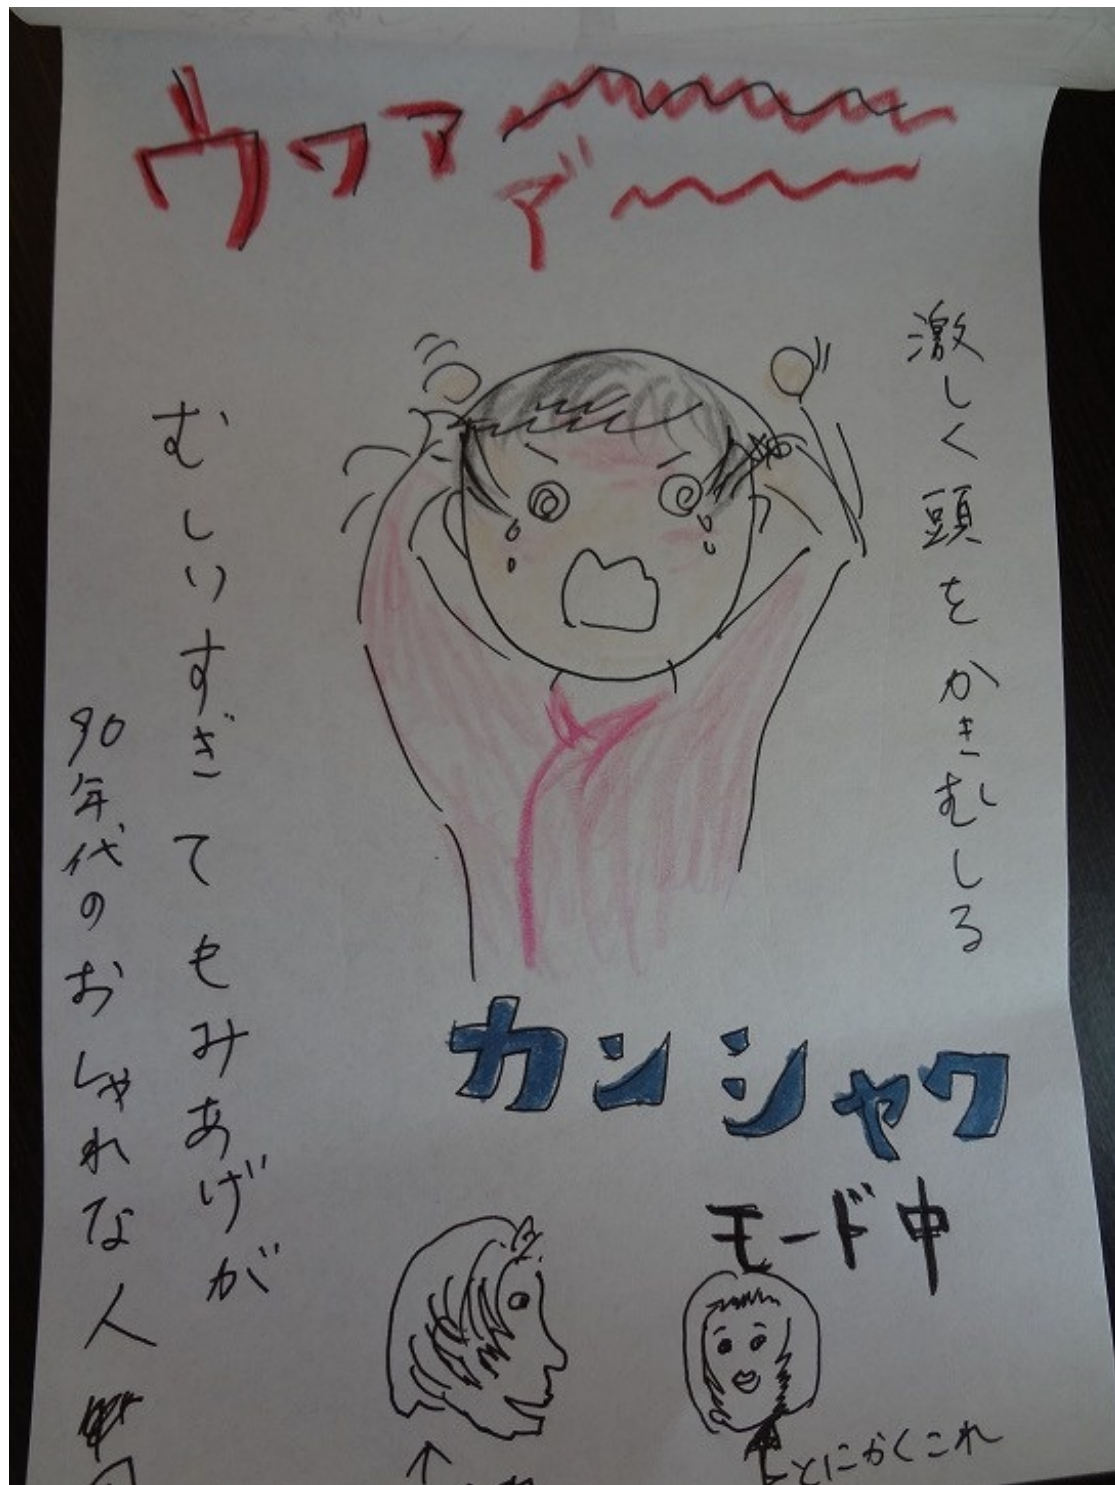 ウワァ〜〜
ア゛〜〜
激しく頭をかきむしる
むしりすぎてもみあげが
90年代のおしゃれな人
カンシャク
モード中
とにかくこれ